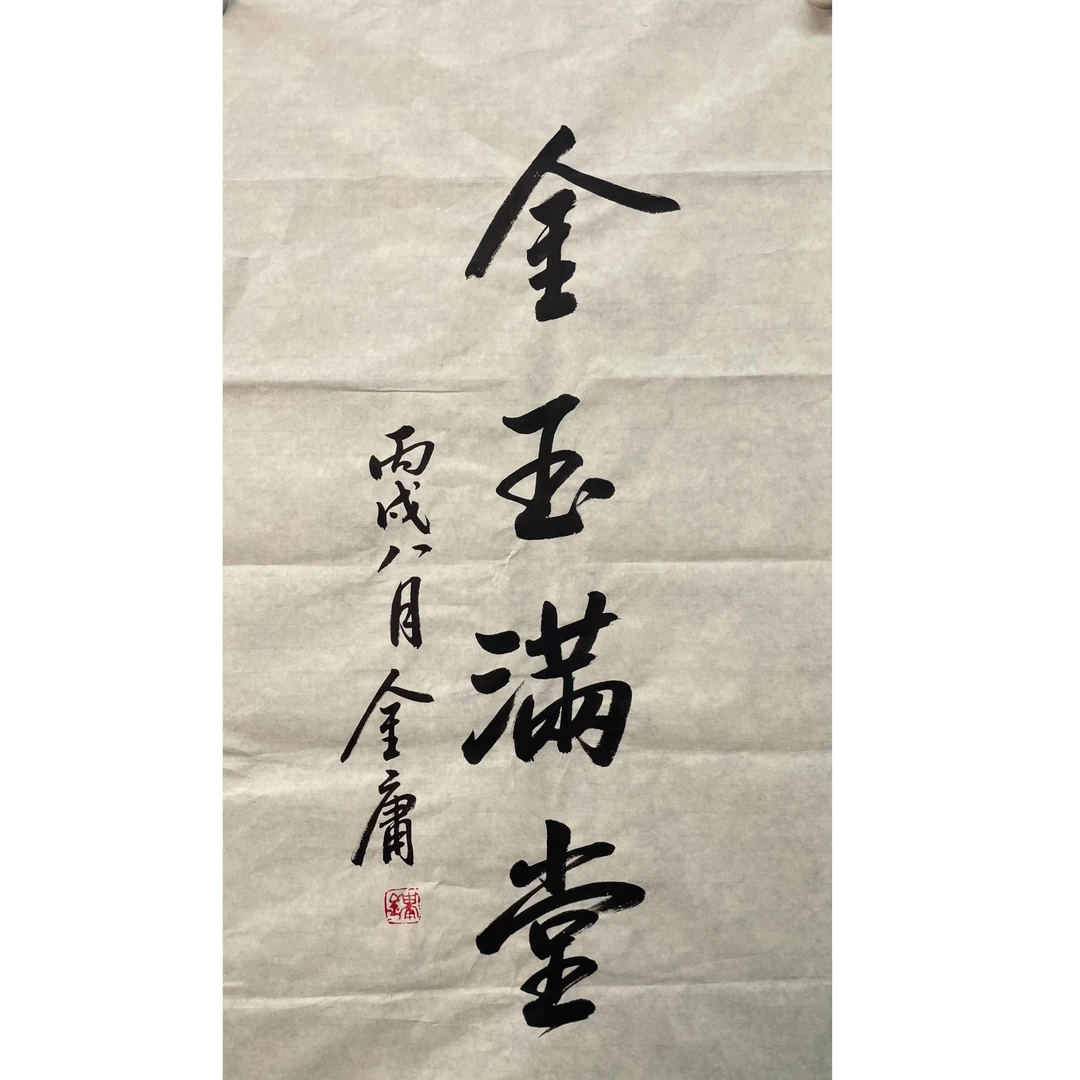 金玉滿堂
丙戌八月金庸